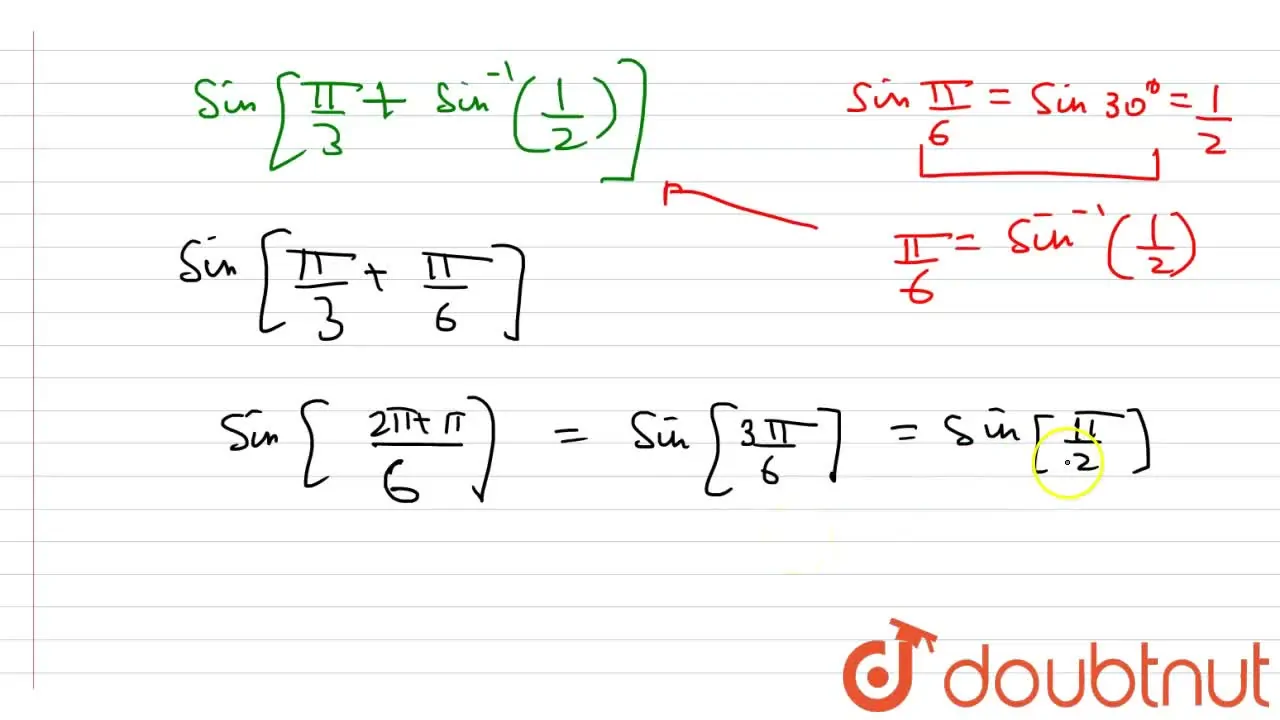 Sin [π/3 + Sin⁻¹(1/2)]
Sin π/6 = Sin 30° = 1/2
π/6 = Sin⁻¹(1/2)
Sin [π/3 + π/6]
Sin [(2π+π)/6] = Sin [3π/6] = Sin [π/2]
doubtnut